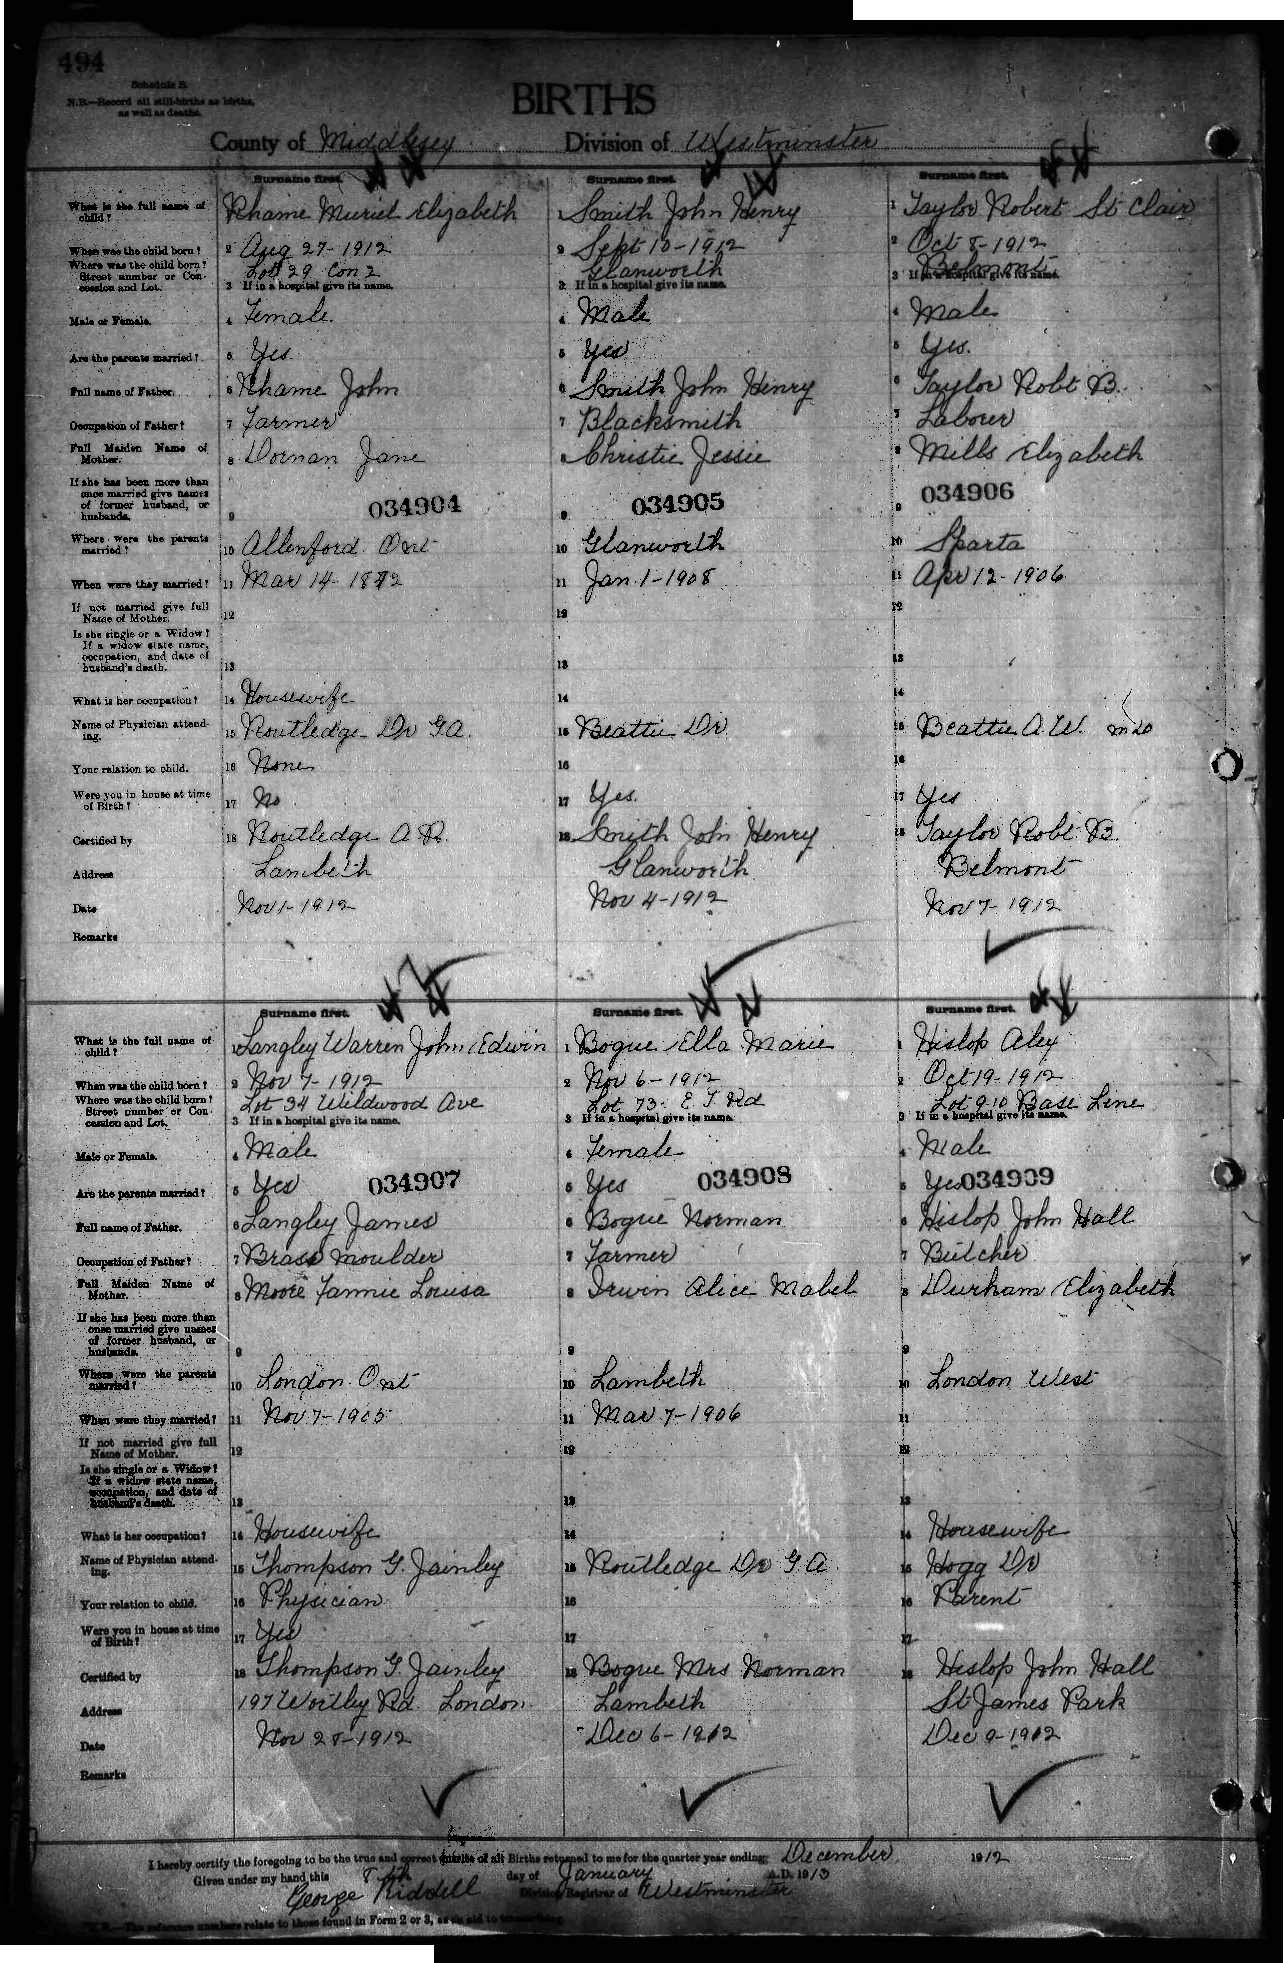 494
Schedule B.
N.B.—Record all still-births as births,
as well as deaths.
BIRTHS
County of Middlesex Division of Westminster
Surname first. Surname first. Surname first.
What is the full name of child? 1 Rhame Muriel Elizabeth 1 Smith John Henry 1 Taylor Robert St Clair
When was the child born? 2 Aug 27-1912 2 Sept 10-1912 2 Oct 8-1912
Where was the child born? Street number or Concession and Lot. Lot 29 Con 2 Glanworth Belmont
3 If in a hospital give its name. 3 If in a hospital give its name. 3 If in a hospital give its name.
Male or Female. 4 Female. 4 Male 4 Male
Are the parents married? 5 Yes. 5 Yes 5 Yes.
Full name of Father. 6 Rhame John 6 Smith John Henry 6 Taylor Robt B.
Occupation of Father? 7 Farmer 7 Blacksmith 7 Labourer
Full Maiden Name of Mother. 8 Dornan Jane 8 Christie Jessie 8 Mills Elizabeth
If she has been more than once married give names of former husband, or husbands. 9 034904 9 034905 9 034906
Where were the parents married? 10 Allenford Ont 10 Glanworth 10 Sparta
When were they married? 11 Mar 14- 11 Jan. 1-1908 11 Apr 12-1906
If not married give full Name of Mother. 12 12 12
Is she single or a Widow? If a widow state name, occupation, and date of husband's death. 13 13 13
What is her occupation? 14 Housewife 14 14
Name of Physician attending. 15 Routledge Dr G.A. 15 Beattie Dr 15 Beattie A.W. M D
Your relation to child. 16 None 16 16
Were you in house at time of Birth? 17 No 17 Yes. 17 Yes
Certified by 18 Routledge A R. 18 Smith John Henry 18 Taylor Robt B
Address Lambeth Glanworth Belmont
Date Nov 1-1912 Nov 4-1912 Nov 7-1912
Remarks
Surname first. Surname first. Surname first.
What is the full name of child? 1 Langley Warren John Edwin 1 Bogue Ella Marie 1 Hislop Alex
When was the child born? 2 Nov 7-1912 2 Nov 6-1912 2 Oct 19-1912
Where was the child born? Street number or Concession and Lot. Lot 34 Wildwood Ave Lot 73. E T Rd Lot 9-10 Base Line
3 If in a hospital give its name. 3 If in a hospital give its name. 3 If in a hospital give its name.
Male or Female. 4 Male 4 Female 4 Male
Are the parents married? 5 Yes 034907 5 Yes 034908 5 Yes 034909
Full name of Father. 6 Langley James 6 Bogue Norman 6 Hislop John Hall
Occupation of Father? 7 Brass Moulder 7 Farmer 7 Butcher
Full Maiden Name of Mother. 8 Moore Fannie Louisa 8 Irwin Alice Mabel 8 Durham Elizabeth
If she has been more than once married give names of former husband, or husbands. 9 9 9
Where were the parents married? 10 London Ont 10 Lambeth 10 London West
When were they married? 11 Nov 7-1905 11 Mar 7-1906 11
If not married give full Name of Mother. 12 12 12
Is she single or a Widow? If a widow state name, occupation, and date of husband's death. 13 13 13
What is her occupation? 14 Housewife 14 14 Housewife
Name of Physician attending. 15 Thompson G. 15 Routledge Dr G A 15 Hogg Dr
Your relation to child. 16 Physician 16 16 Parent
Were you in house at time of Birth? 17 Yes 17 17
Certified by 18 Thompson G. 18 Bogue Mrs Norman 18 Hislop John Hall
Address 197 Wortley Rd. London Lambeth St James Park
Date Nov 28-1912 Dec 6-1912 Dec 9-1912
Remarks
I hereby certify the foregoing to be the true and correct of all Births returned to me for the quarter year ending December 1912
Given under my hand this 8th day of January A.D. 1913
George Riddell Division Registrar of Westminster
N.B.—The reference numbers relate to those found in Form 2 or 3, as an aid to transcribing.